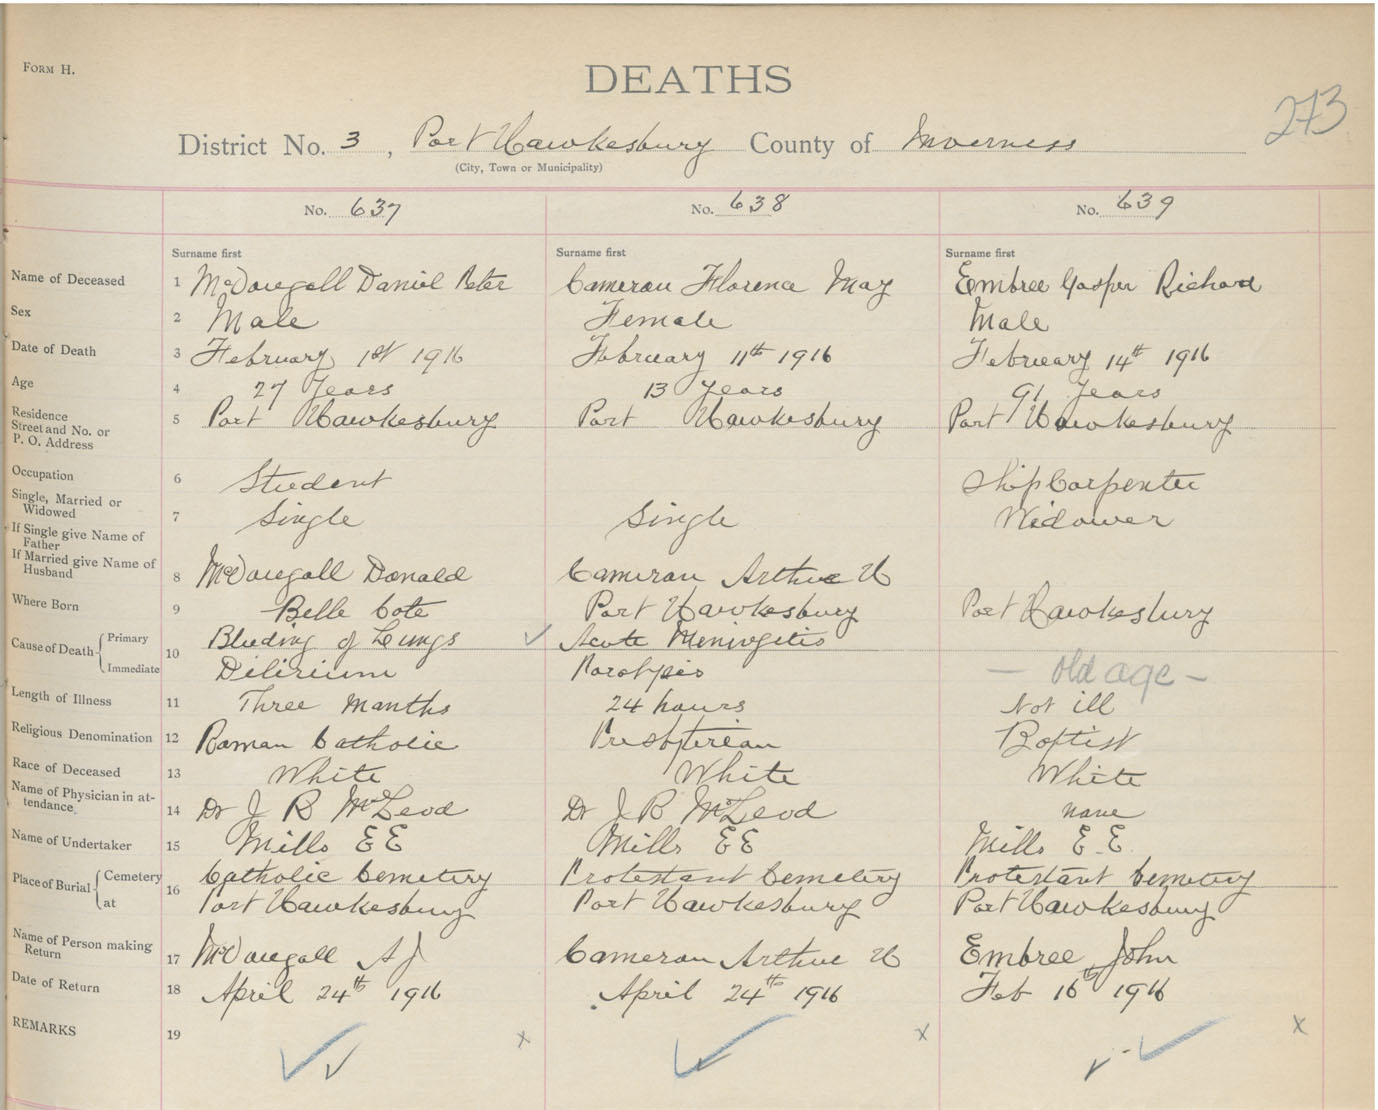 FORM H.
DEATHS
273
District No. 3, Port Hawkesbury County of Inverness
(City, Town or Municipality)
No. 637 No. 638 No. 639
Surname first Surname first Surname first
Name of Deceased 1 McDougall Daniel Peter Cameron Florence May Embree Gasper Richard
Sex 2 Male Female Male
Date of Death 3 February 1st 1916 February 11th 1916 February 14th 1916
Age 4 27 Years 13 years 91 years
Residence Street and No. or P. O. Address 5 Port Hawkesbury Port Hawkesbury Port Hawkesbury
Occupation 6 Student Ship Carpenter
Single, Married or Widowed 7 Single Single Widower
If Single give Name of Father
If Married give Name of Husband 8 McDougall Donald Cameron Arthur H
Where Born 9 Belle Cote Port Hawkesbury Port Hawkesbury
Cause of Death Primary 10 Bleeding of Lungs Acute Meningitis
Immediate Delirium Paralysis - old age -
Length of Illness 11 Three Months 24 hours Not ill
Religious Denomination 12 Roman Catholic Presbyterian Baptist
Race of Deceased 13 White White White
Name of Physician in attendance. 14 Dr J B McLeod Dr J B McLeod none
Name of Undertaker 15 Mills E E Mills E E Mills E. E.
Place of Burial Cemetery 16 Catholic Cemetery Protestant Cemetery Protestant Cemetery
at Port Hawkesbury Port Hawkesbury Port Hawkesbury
Name of Person making Return 17 McDougall A J Cameron Arthur H Embree John
Date of Return 18 April 24th 1916 April 24th 1916 Feb 16th 1916
REMARKS 19 x x x